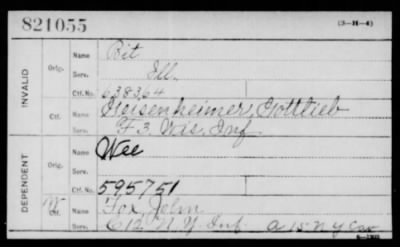 821055 (3-H-4)
INVALID
Orig. Name Rit
Serv. Ill.
Ctf. No. 638364
Ctf. Name Geisenheimer, Gottlieb
Serv. F 3. Wis. Inf
DEPENDENT
Orig. Name Wee
Serv.
Ctf. No. 595751
W Ctf. Name Fox, John
Serv. C 12 N.Y. Inf. A 15 N Y Cav